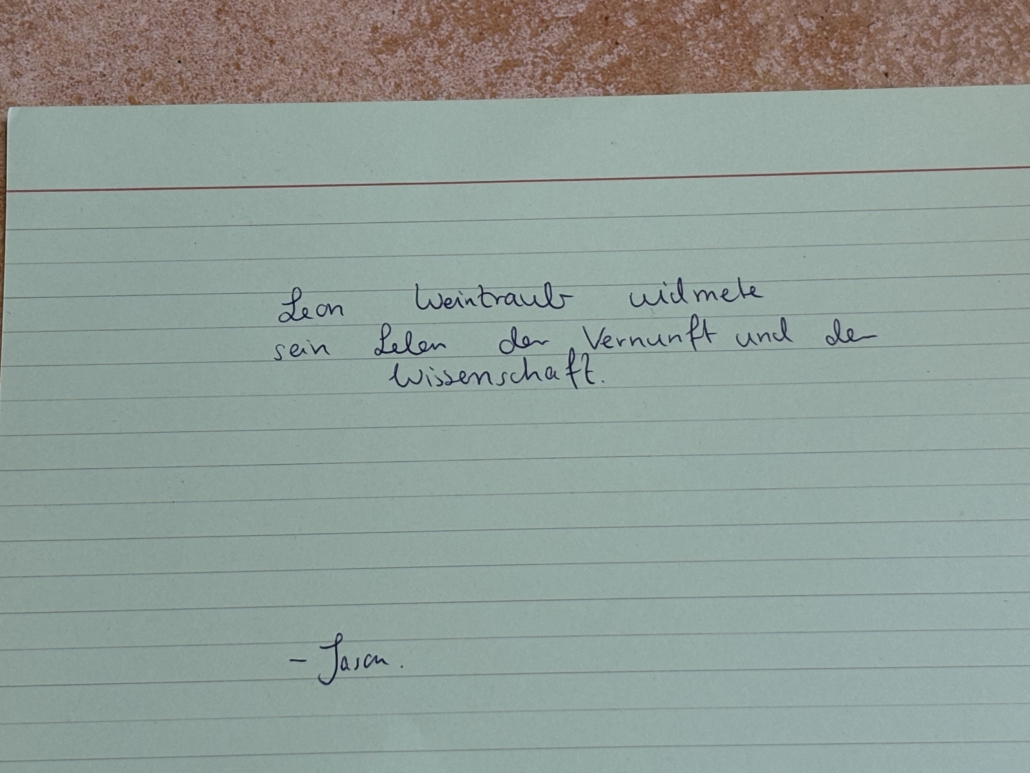 Leon Weintraub widmete
sein Leben der Vernunft und der
Wissenschaft.
- Jason.